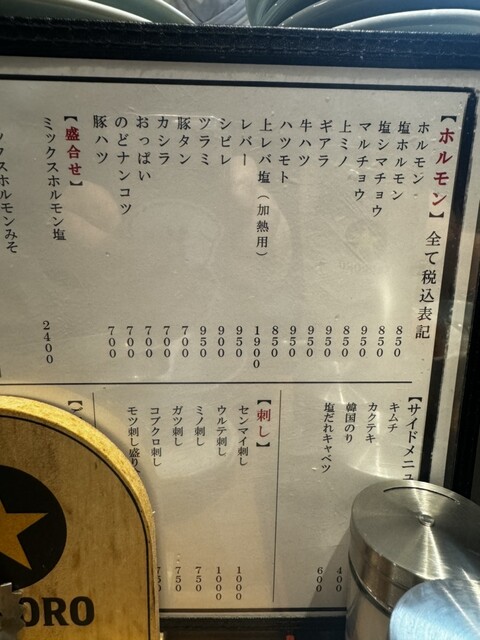 【ホルモン】全て税込表記
ホルモン 850
塩ホルモン 850
塩シマチョウ 950
マルチョウ 950
上ミノ 850
ギアラ 950
牛ハツ 950
ハツモト 850
上レバ塩（加熱用） 1900
レバー 950
シビレ 900
ツラミ 950
豚タン 700
カシラ 700
おっぱい 700
のどナンコツ 700
豚ハツ 700
【盛合せ】
ミックスホルモン塩 2400
ックスホルモンみそ
【サイドメニュ
キムチ
カクテキ
韓国のり 400
塩だれキャベツ 600
【刺し】
センマイ刺し 1000
ウルテ刺し 1000
ミノ刺し 750
ガツ刺し 750
コブクロ刺し 750
モツ刺し盛り
ORO